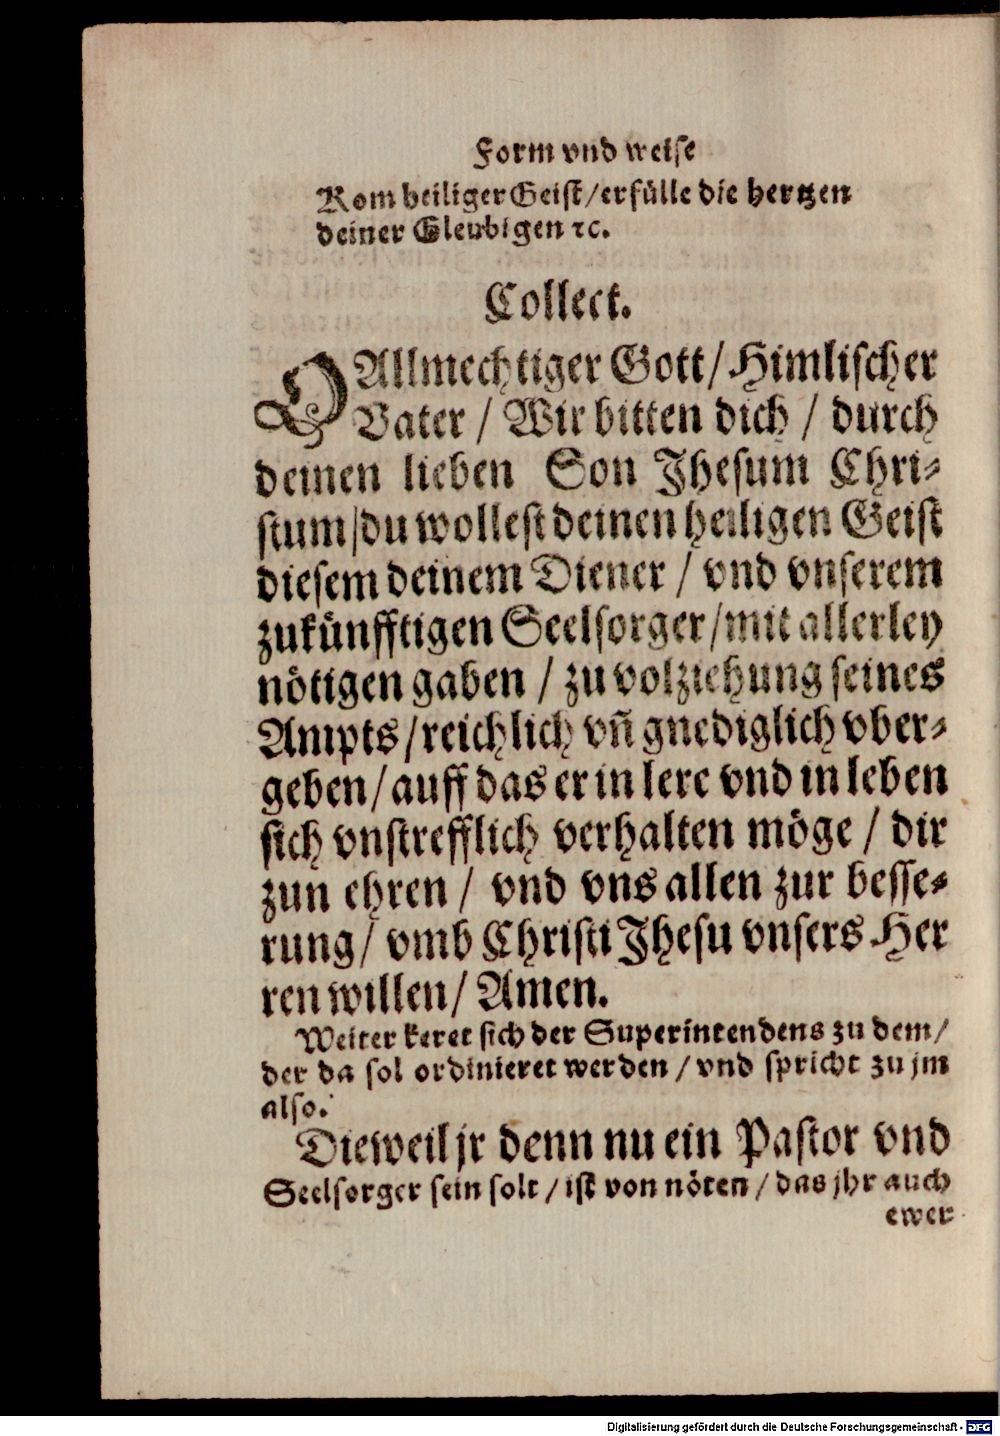 Form vnd weise
Kom heiliger Geist/erfülle die hertzen
deiner Gleubigen ꝛc.
Collect.
O Allmechtiger Gott/Himlischer
Vater / Wir bitten dich / durch
deinen lieben Son Jhesum Chri-
stum/du wollest deinen heiligen Geist
diesem deinem Diener / vnd vnserem
zukünfftigen Seelsorger/mit allerley
nötigen gaben / zu volziehung seines
Ampts/reichlich vn̄ gnediglich vber-
geben/auff das er in lere vnd in leben
sich vnstrefflich verhalten möge / dir
zun ehren / vnd vns allen zur besse-
rung/ vmb Christi Jhesu vnsers Her
ren willen/ Amen.
Weiter keret sich der Superintendens zu dem/
der da sol ordinieret werden / vnd spricht zu jm
also.
Dieweil jr denn nu ein Pastor vnd
Seelsorger sein solt / ist von nöten / das jhr auch
ewer
Digitalisierung gefördert durch die Deutsche Forschungsgemeinschaft - DFG